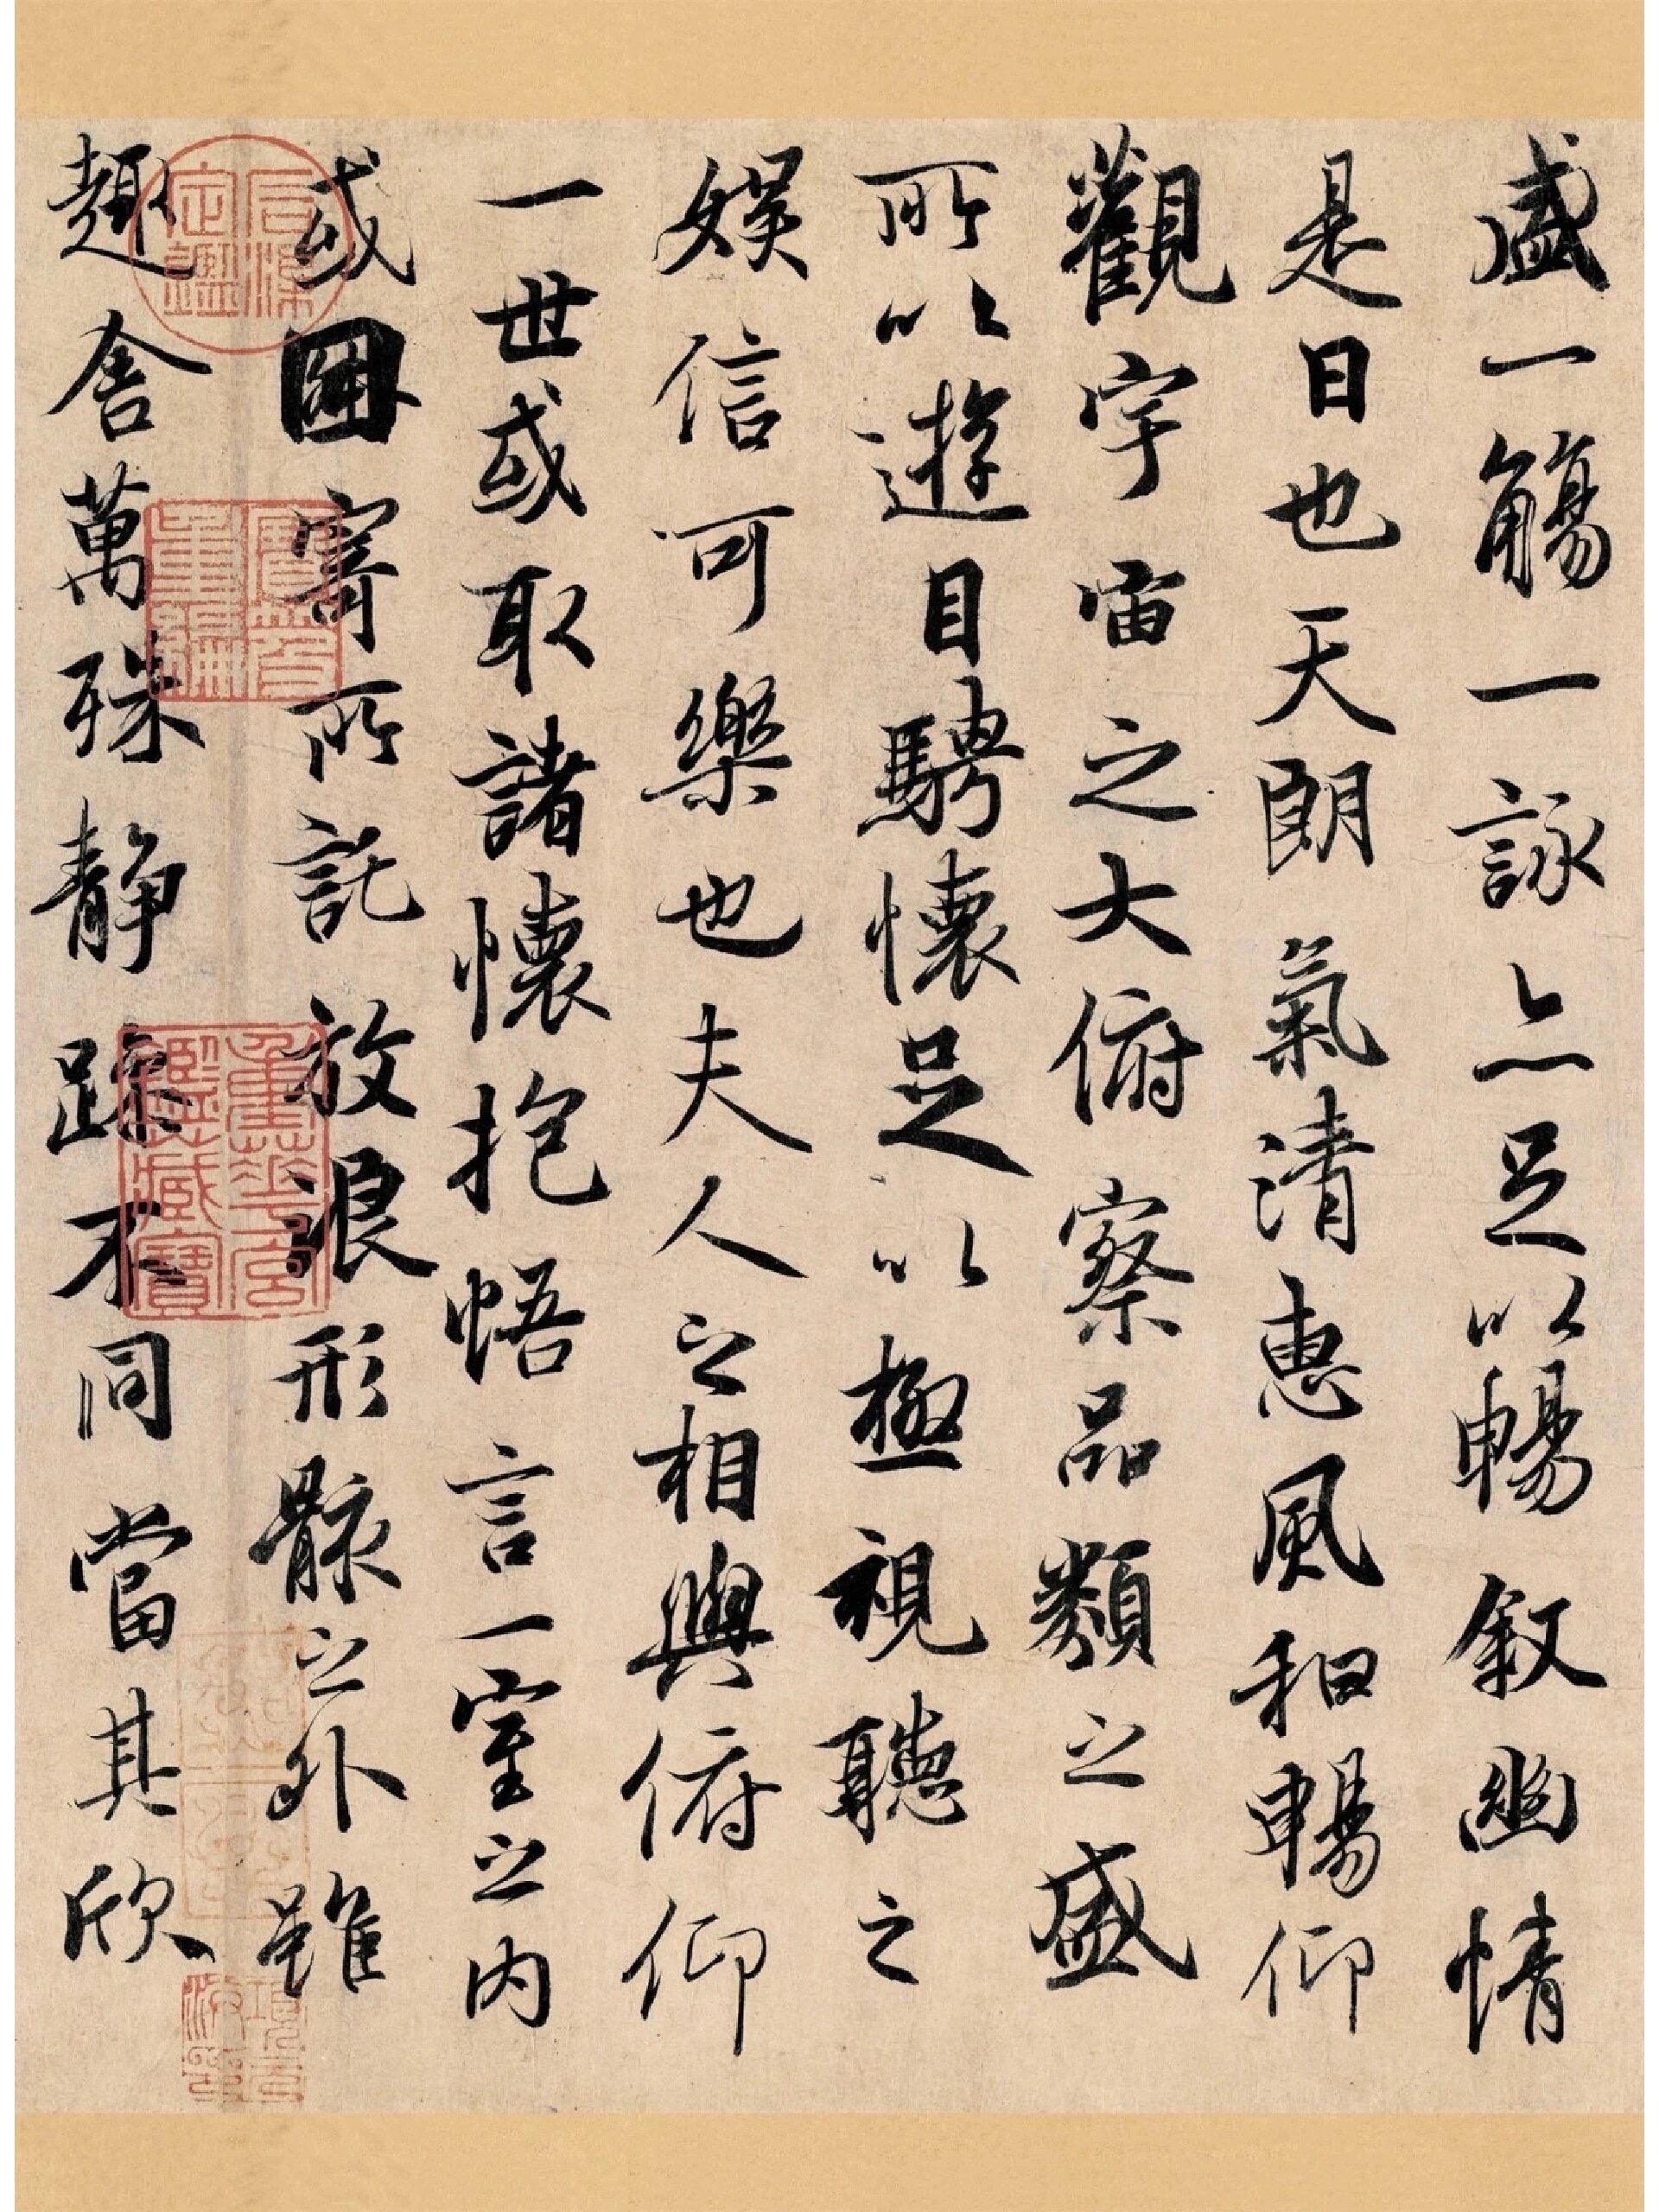 盛一觴一詠亦足以暢叙幽情
是日也天朗氣清惠風和暢仰
觀宇宙之大俯察品類之盛
所以遊目騁懷足以極視聽之
娛信可樂也夫人之相與俯仰
一世或取諸懷抱悟言一室之內
或因寄所託放浪形骸之外雖
趣舍萬殊静躁不同當其欣
石渠定鑑
寶笈重編
重華宮鑑藏寶